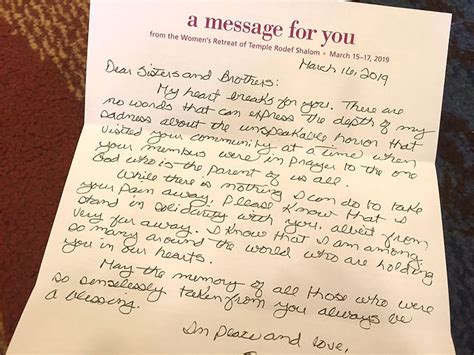 a message for you
from the Women's Retreat of Temple Rodef Shalom • March 15–17, 2019
March 16, 2019
Dear Sisters and Brothers:
My heart breaks for you. There are
no words that can express the depth of my
sadness about the unspeakable horror that
visited your community at a time when
your members were in prayer to the one
God who is the parent of us all.
While there is nothing I can do to take
your pain away, please know that I
stand in solidarity with you, albeit from
very far away. I know that I am among
so many around the world who are holding
you in our hearts.
May the memory of all those who were
so senselessly taken from you always be
a blessing.
In peace and love,